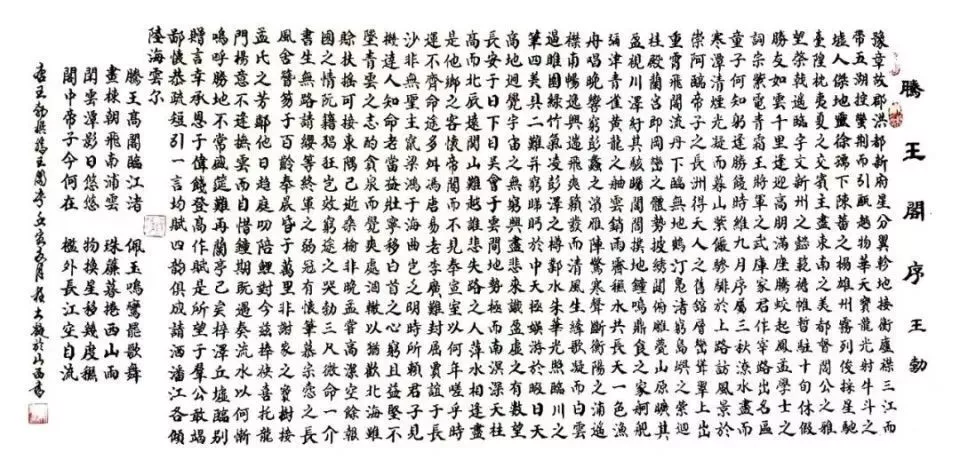 騰王閣序 王勃
豫章故郡洪都新府星分翼軫地接衡廬襟三江而
帶五湖控蠻荊而引甌越物華天寶龍光射牛斗之
墟人傑地靈徐孺下陳蕃之榻雄州霧列俊採星馳
臺隍枕夷夏之交賓主盡東南之美都督閻公之雅
望棨戟遙臨宇文新州之懿範襜帷暫駐十旬休假
勝友如雲千里逢迎高朋滿座騰蛟起鳳孟學士之
詞宗紫電青霜王將軍之武庫家君作宰路出名區
童子何知躬逢勝餞時維九月序屬三秋潦水盡而
寒潭清煙光凝而暮山紫儼驂騑於上路訪風景於
崇阿臨帝子之長洲得天人之舊館層巒聳翠上出
重霄飛閣流丹下臨無地鶴汀鳧渚窮島嶼之縈迴
桂殿蘭宮即岡巒之體勢披繡闥俯雕甍山原曠其
盈視川澤紆其駭矚閭閻撲地鐘鳴鼎食之家舸艦
彌津青雀黃龍之舳雲銷雨霽秋水共長天一色漁
舟唱晚響窮彭蠡之濱雁陣驚寒聲斷衡陽之浦遙
襟甫暢逸興遄飛爽籟發而清風生纖歌凝而白雲
遏睢園綠竹氣凌彭澤之樽鄴水朱華光照臨川之
筆四美具二難并窮睇眄於中天極娛遊於暇日天
高地迥覺宇宙之無窮興盡悲來識盈虛之有數望
長安於日下目吳會于雲間地勢極而南溟深天柱
高而北辰遠關山難越誰悲失路之人萍水相逢盡
是他鄉之客懷帝閽而不見奉宣室以何年嗟乎時
運不齊命途多舛馮唐易老李廣難封屈賈誼于長
沙非無聖主竄梁鴻于海曲豈乏明時所賴君子見
機達人知命老當益壯寧移白首之心窮且益堅不
墜青雲之志酌貪泉而覺爽處涸轍以猶歡北海雖
賒扶搖可接東隅已逝桑榆非晚孟嘗高潔空餘報
國之情阮籍猖狂豈效窮途之哭勃三尺微命一介
書生無路請纓等終軍之弱冠有懷筆慕宗愨之長
風舍簪笏于百齡奉晨昏于萬里非謝家之寶樹接
孟氏之芳鄰他日趨庭叨陪鯉對今茲捧袂喜托龍
門楊意不逢撫雲而自惜鍾期既遇奏流水以何慚
嗚呼勝地不常盛筵難再蘭亭已矣梓澤丘墟臨別
贈言幸承恩于偉餞登高作賦是所望于群公敢竭
鄙懷恭疏短引一言均賦四韻俱成請灑潘江各傾
陸海雲爾
騰王高閣臨江渚 佩玉鳴鸞罷歌舞
畫棟朝飛南浦雲 珠簾暮捲西山雨
閑雲潭影日悠悠 物換星移幾度秋
閣中帝子今何在 檻外長江空自流